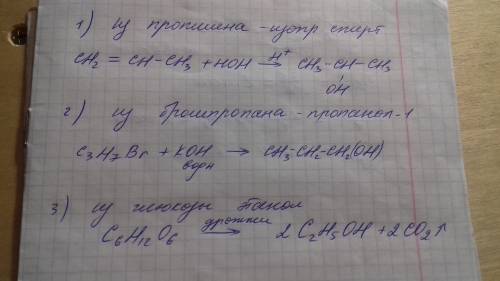 1) из пропилена - изопр спирт
CH₂ = CH-CH₃ + HOH →(H⁺) CH₃-CH-CH₃
OH
2) из бромпропана - пропанол-1
C₃H₇Br + KOH → CH₃-CH₂-CH₂(OH)
водн
3) из глюкозы этанол
C₆H₁₂O₆ →(дрожжи) 2 C₂H₅OH + 2CO₂↑